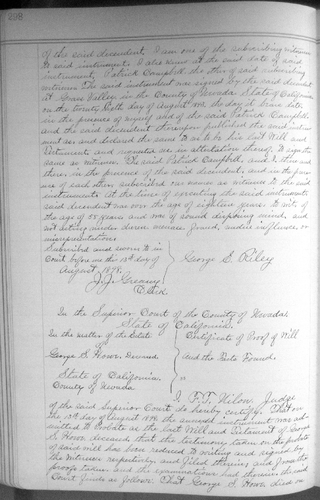 298
of the said decendent, I am one of the subscribing witnesses
to said instrument. I also knew at the said date of said
instrument, Patrick Campbell the other of said subscribing
witnesses. The said instrument was signed by the said decendent
at Grass Valley in the County of Nevada State of California
on the twenty sixth day of August the day it bears date
in the presence of myself and of the said Patrick Campbell
and the said decendent thereupon published the said instru
ment as and declared the same to us to be his last Will and
Testament, and requested us in attestation thereof to
same as witnesses. The said Patrick Campbell, and I, then and
there, in the presence of the said decendent, and in the pres
ence of each other, subscribed our names as witnesses to the said
instrument. At the time of executing the said instrument
said decendent was over the age of eighteen years to wit of
the age of 55 years and was of sound disposing mind, and
not acting under duress menace fraud, undue influence, or
misrepresentation.
Subscribed and sworn to in
Court before me this 13th day of
August 1898.
George E. Riley
J. J. Greany
Clerk
In the Superior Court of the County of Nevada,
State of California.
In the matter of the Estate
of
George S. Howe, Deceased
Certificate of Proof of Will
and the Facts Found.
State of California,
County of Nevada
I, F. T. Nilon, Judge
of the said Superior Court do hereby certify: That on
the 13th day of August 1898 the annexed instrument was ad
mitted to Probate as the last Will and Testament of George
S. Howe deceased that the testimony taken on the probate
of said will has been reduced to writing and signed by
the witnesses respectively and filed therein; and from the
proofs taken and the examinations had therein the said
Court finds as follows: That George S. Howe died on